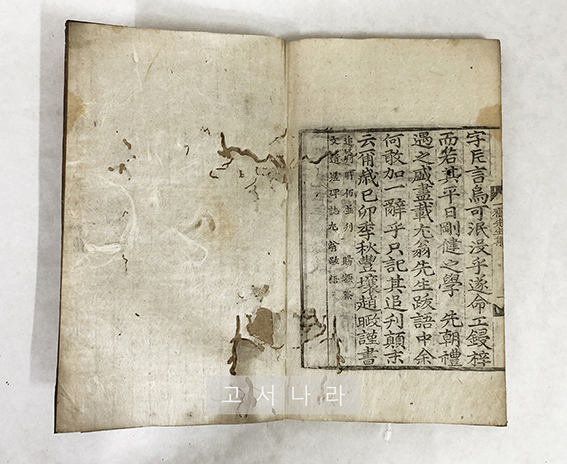 字片言烏可泯沒乎遂命工鋟梓
而若其平日剛健之學 先朝禮
遇之盛盡載尤翁先生跋語中余
何敢加一辭乎只記其追刋顛末
云爾歲己卯季秋豐壤趙暇謹書
追 刋 賜額祭
文 碑誌尤翁
고서나라